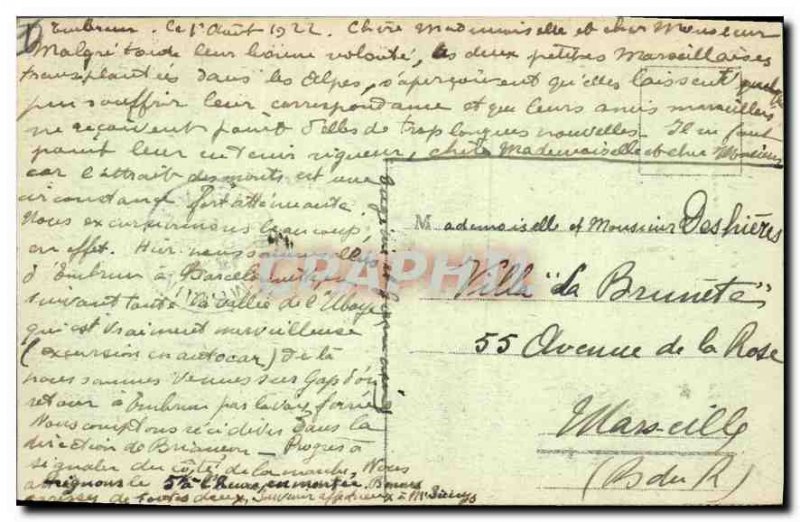 Embrun. le 1r Août 1922. Chère Mademoiselle et cher Monsieur
Malgré toute leur bonne volonté, les deux petites Marseillaises
transplantées dans les Alpes, s'aperçoivent qu'elles laissent quelque
peu souffrir leur correspondance et que leurs amis marseillais
ne reçoivent point d'elles de trop longues nouvelles. Il ne faut
point leur en tenir rigueur, chère Mademoiselle et cher Monsieur
car l'attrait des monts est une
circonstance fort atténuante.
Nous excursionnons beaucoup,
en effet. Hier nous sommes allés
d'Embrun à Barcelonnette
suivant toute la vallée de l'Ubaye
qui est vraiment merveilleuse
(excursion en autocar) De là
nous sommes venues sur Gap d'où
retour à Embrun par la voie ferrée
Nous comptons récidiver dans la
direction de Briançon _ Progrès à
signaler du côté de la marche, Nous
atteignons le 5 à l'heure, en montée, Bonnes
de toutes deux, Souvenir affectueux à Mr
Mademoiselle et Monsieur Deshières
Villa "La Brunète"
55 Avenue de la Rose
Marseille
(B. du R)
CPAPHIL